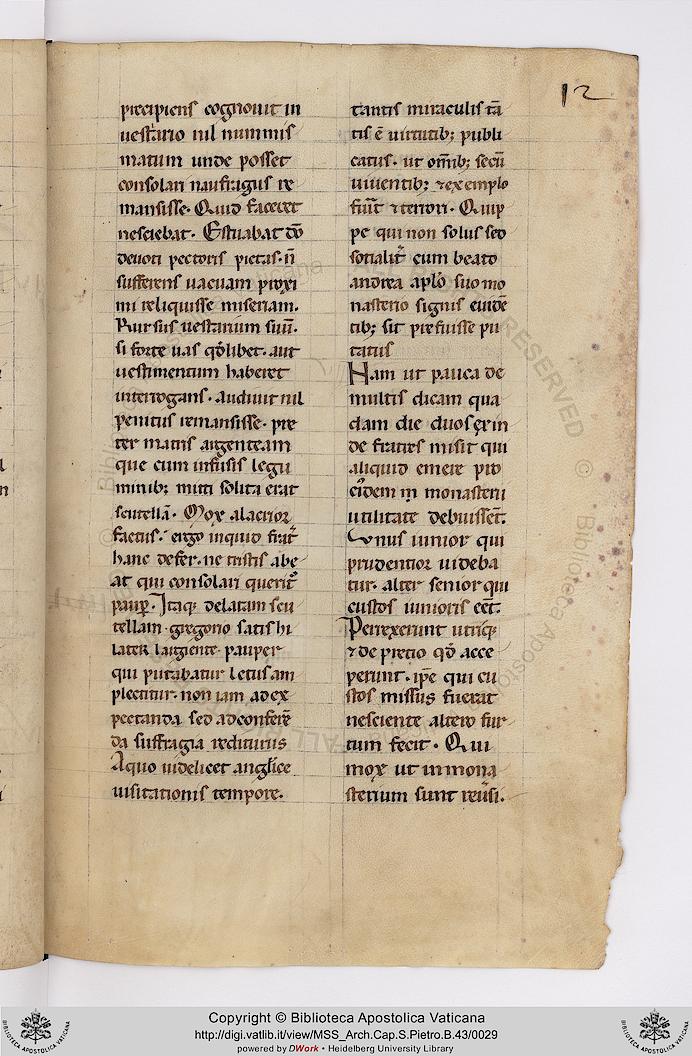 12
precipiens cognouit in
uestiario nil nummis
matum unde posset
consolari naufragus re
mansisse. Quid faceret
nesciebat. Estuabat
deuoti pectoris pietas. n̄
sufferens uacuam proxi
mi reliquisse miseriam.
Rursus uestiarium suū.
si forte uas qd̄libet. aut
uestimentum haberet
interrogans. audiuit nil
penitus remansisse. pre
ter matris argenteam
que cum infusis legu
minib; mitti solita erat
scutellā. Mox alacrior
factus. ergo inquid frat̄
hanc defer. ne tristis abe
at qui consolari querit̄
paup̄. Itaq; delatam scu
tellam. gregorio satis hi
lariter largiente pauper
qui putabatur letus am
plectitur. non iam ad ex
pectanda sed ad conferē
da suffragia rediturus
A quo uidelicet anglice
uisitationis tempore.
tantis miraculis tā
tis ē uirtutib; publi
catus. ut om̄ib; secū
uiuentib; ⁊ exemplo
fiu̅t ⁊ terrori. Quip
pe qui non solus sed
sotialit̄ cum beato
andrea aplo̅ suo mo
nasterio signis euidē
tib; sit prefuisse pu
tatus
Nam ut pauca de
multis dicam qua
dam die duos exin
de fratres misit qui
aliquid emere pro
eidem in monasterii
utilitate debuissent.
Unus iunior qui
prudentior uideba
tur. alter senior qui
custos iunioris eet̄.
Perrexerunt utriq;
⁊ de pretio qd̄ acce
perunt. ip̄e qui cu
stos missus fuerat
nesciente altero fur
tum fecit. Qui
mox ut in mona
sterium sunt reu̅si.
Copyright © Biblioteca Apostolica Vaticana
http://digi.vatlib.it/view/MSS_Arch.Cap.S.Pietro.B.43/0029
powered by DWork - Heidelberg University Library